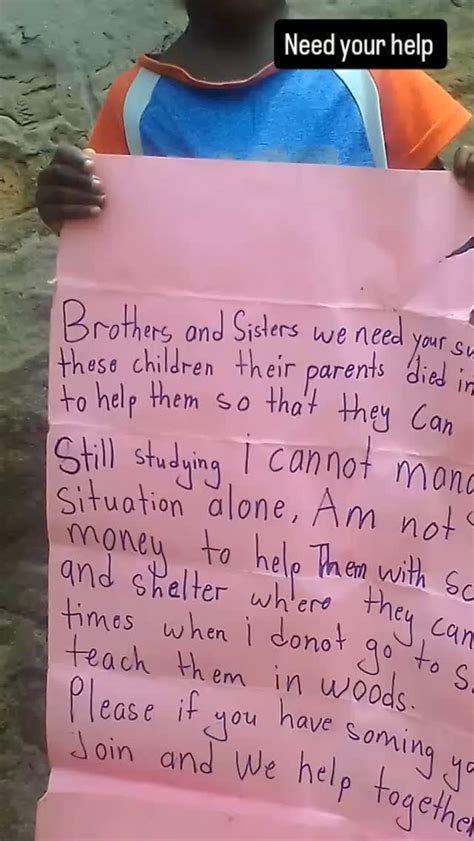 Need your help
Brothers and Sisters we need your su
these children their parents died in
to help them so that they can
Still studying i cannot mana
situation alone, Am not
money to help Them with sc
and shelter where they can
times when i donot go to s
teach them in woods.
Please if you have soming yo
Join and We help together